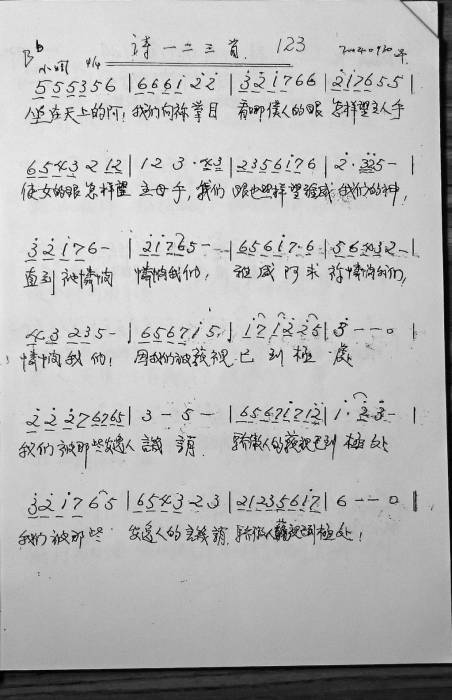 Bb 小调 4/4 詩一二三首. 123
5 5 5 3 5 6 | 6 6 6 1̇ 2̇ 2̇ | 3̇ 2̇ 1̇ 7 6 6 | 2̇ 1̇ 7 6 5 5
坐在天上的阿! 我們向祢举目 看哪僕人的眼 怎样望主人手
6 5 4 3 2 1 2 | 1 2 3 · 4 3 | 2 3 5 6 1̇ 7 6 | 2̇ · 3̇ 2̇ 5 -
使女的眼怎样望 主母手, 我们 眼也照样望 我们的神!
3̇ 2̇ 1̇ 7 6 - | 2̇ 1̇ 7 6 5 - - | 6 5 6 1̇ 7 · 6 | 5 6 4 3 2 -
直到祂憐悯 憐悯我们, 阿求 祢憐悯我们,
4 3 2 3 5 - | 6 5 6 7 1̇ 5 | 1̇ 7 1̇ 2̇ 2̇ 5 | 3̇ - - 0
憐悯我们! 因我们被藐視 已到極 處
2̇ 2̇ 2̇ 7 6 7 6 5 | 3 - 5 - | 6 5 6 7 1̇ 7 1̇ 2̇ | 1̇ · 2̇ 3̇ -
我们被那些安逸人 譏 誚 驕傲人的藐視已到 極处
3̇ 2̇ 1̇ 7 6 5 | 6 5 4 3 2 3 | 2 1 2 3 5 6 1̇ 7 | 6 - - 0
我们被那些 安逸人的譏誚, 驕傲人藐視到極处!